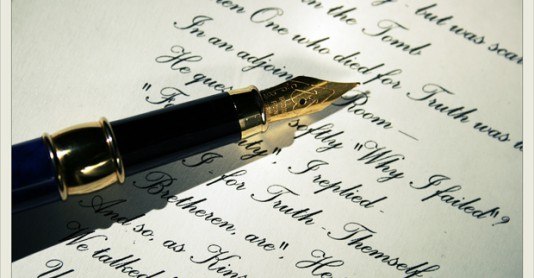 - but was scar
n the Tomb
en One who died for Truth was
In an adjoin Room —
He ques softly "Why I failed"?
"F ty", I replied -
I, for Truth - Themself
Bretheren, are", He
And so, as Kins
We talked
U